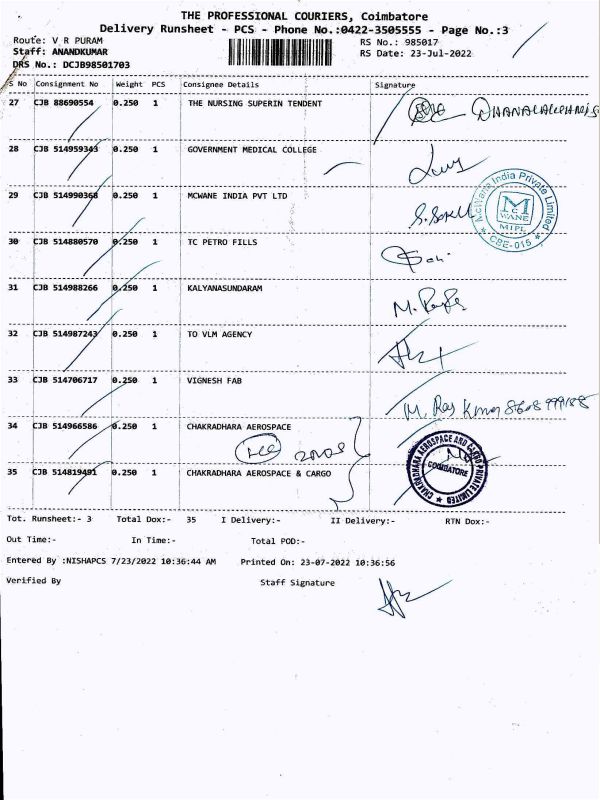 THE PROFESSIONAL COURIERS, Coimbatore
Delivery Runsheet - PCS - Phone No.:0422-3505555 - Page No.:3
Route: V R PURAM RS No.: 985017
Staff: ANANDKUMAR RS Date: 23-Jul-2022
DRS No.: DCJB98501703
S No Consignment No Weight PCS Consignee Details Signature
27 CJB 88690554 0.250 1 THE NURSING SUPERIN TENDENT
28 CJB 514959343 0.250 1 GOVERNMENT MEDICAL COLLEGE
29 CJB 514990368 0.250 1 MCWANE INDIA PVT LTD
McWane India Private Limited
McWANE
MIPL
★ CBE-015 ★
30 CJB 514880570 0.250 1 TC PETRO FILLS
31 CJB 514988266 0.250 1 KALYANASUNDARAM
32 CJB 514987243 0.250 1 TO VLM AGENCY
33 CJB 514706717 0.250 1 VIGNESH FAB
34 CJB 514966586 0.250 1 CHAKRADHARA AEROSPACE
35 CJB 514819491 0.250 1 CHAKRADHARA AEROSPACE & CARGO
CHAKRADHARA AEROSPACE AND CARGO PRIVATE LIMITED ★
COIMBATORE
Tot. Runsheet:- 3 Total Dox:- 35 I Delivery:- II Delivery:- RTN Dox:-
Out Time:- In Time:- Total POD:-
Entered By :NISHAPCS 7/23/2022 10:36:44 AM Printed On: 23-07-2022 10:36:56
Verified By Staff Signature